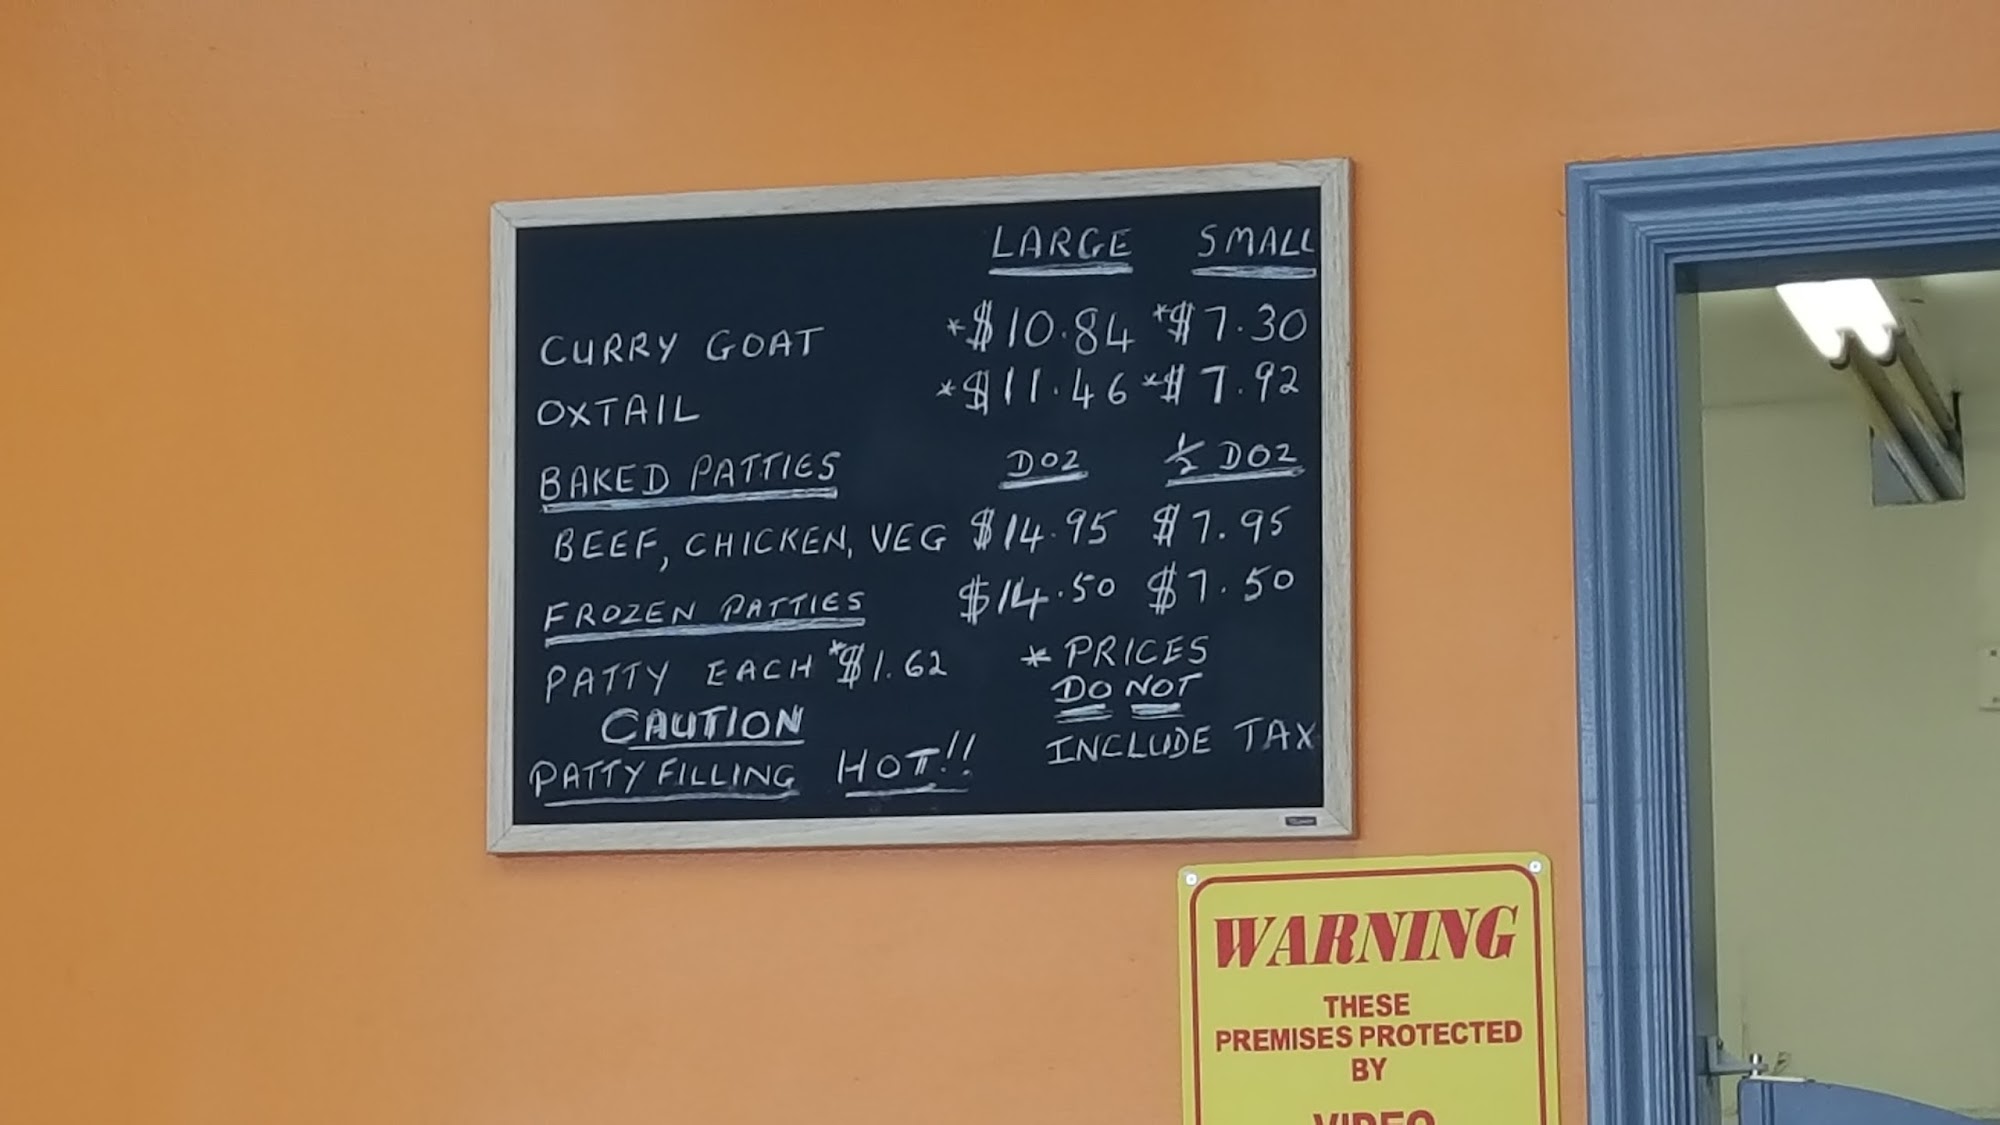 LARGE SMALL
CURRY GOAT *$10.84 *$7.30
OXTAIL *$11.46 *$7.92
BAKED PATTIES DOZ ½ DOZ
BEEF, CHICKEN, VEG $14.95 $7.95
FROZEN PATTIES $14.50 $7.50
PATTY EACH *$1.62
* PRICES
DO NOT
INCLUDE TAX
CAUTION
PATTY FILLING HOT!!
WARNING
THESE
PREMISES PROTECTED
BY
VIDEO